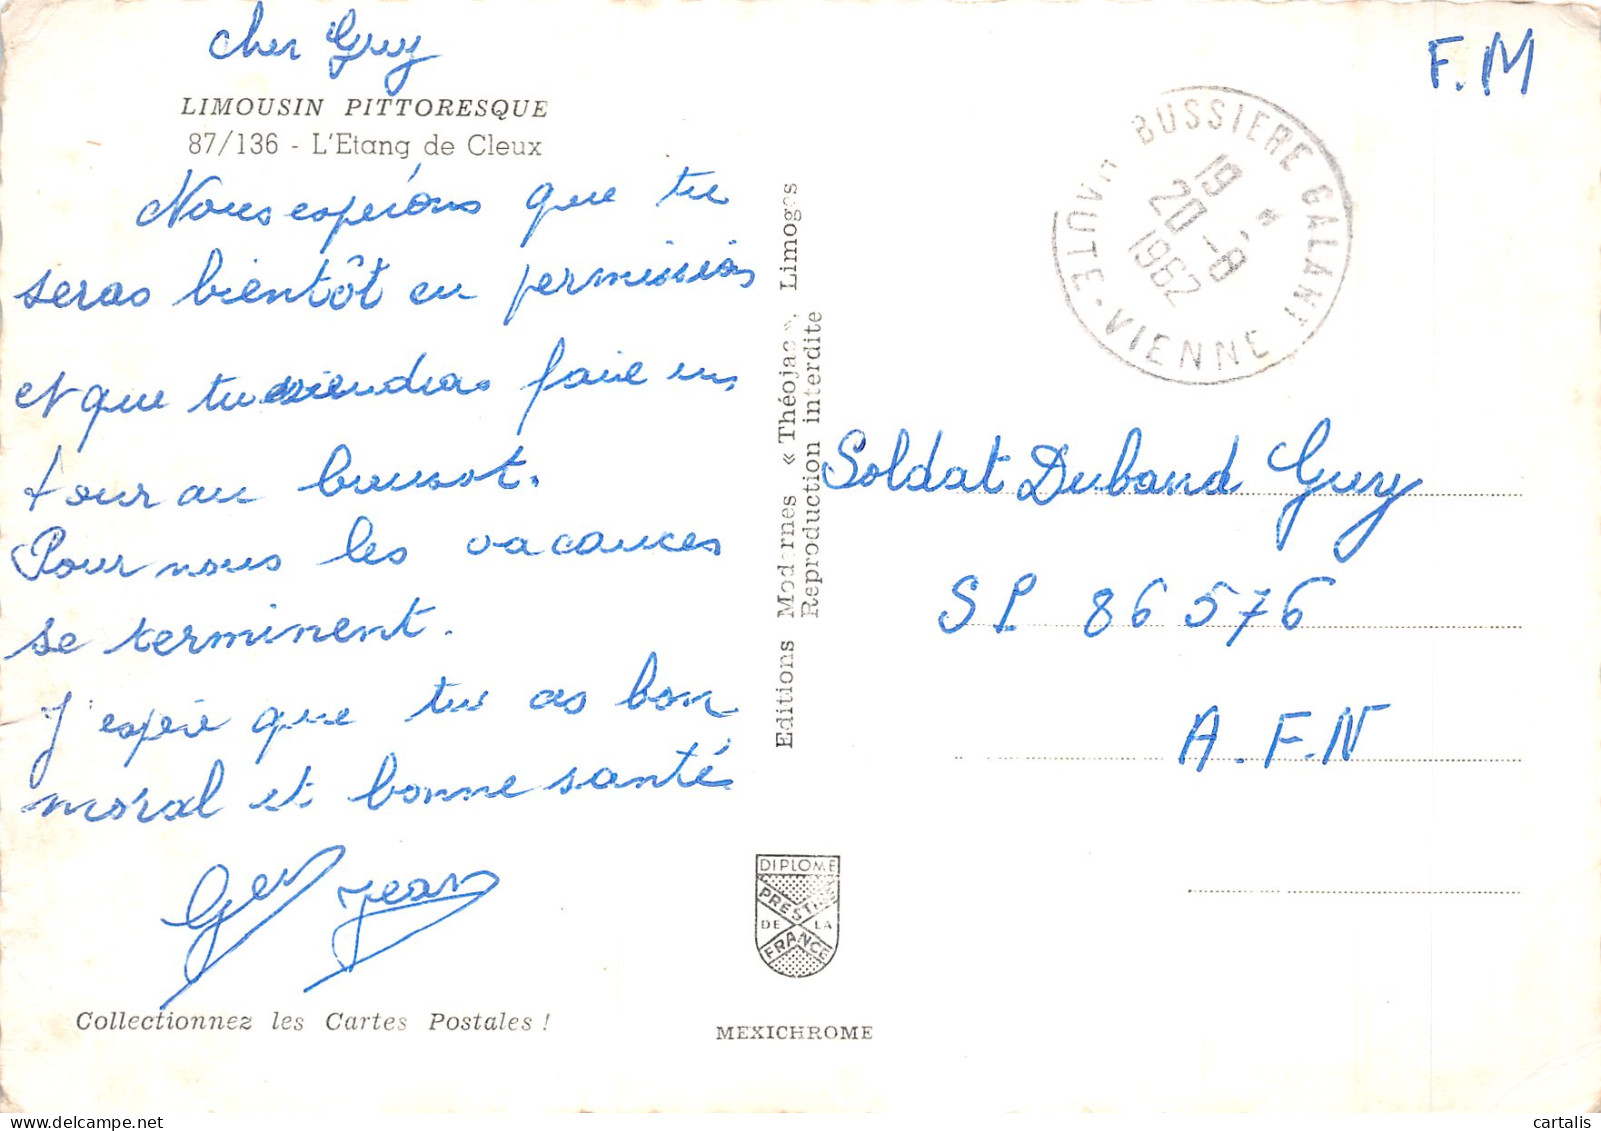 cher Guy
LIMOUSIN PITTORESQUE
87/136 - L'Etang de Cleux
Nous espérons que tu
seras bientôt en permission
et que tu viendras faire un
tour au
Pour nous les vacances
se terminent.
J'espère que tu as bon
moral et bonne santé
Guy Jean
Collectionnez les Cartes Postales !
Editions Modernes « Théojac », Limoges
Reproduction interdite
DIPLOME
PRESTIGE
DE LA
FRANCE
MEXICHROME
F.M
BUSSIERE GALANT
HAUTE-VIENNE
19 H
20 - 8
1962
Soldat Duband Guy
SP 86 576
A.F.N
cartalis
delcampe.net